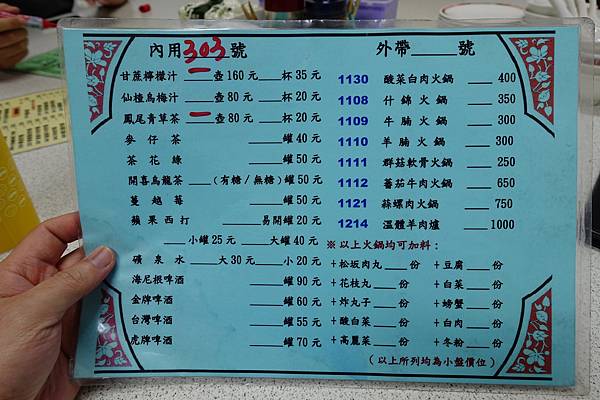 內用303號
外帶____號
甘蔗檸檬汁 一壺160元 ___杯35元
仙橦烏梅汁 ___壺80元 ___杯20元
鳳尾青草茶 一壺80元 ___杯20元
麥仔茶 ____罐40元
茶花綠 ____罐50元
開喜烏龍茶 ___(有糖/無糖)罐50元
蔓越莓 ____罐50元
蘋果西打 ____易開罐20元
___小罐25元 ___大罐40元
礦泉水 ___大30元 ___小20元
海尼根啤酒 ____罐90元
金牌啤酒 ____罐60元
台灣啤酒 ____罐55元
虎牌啤酒 ____罐70元
1130 酸菜白肉火鍋 ___ 400
1108 什錦火鍋 ___ 350
1109 牛腩火鍋 ___ 300
1110 羊腩火鍋 ___ 300
1111 群菇軟骨火鍋 ___ 250
1112 蕃茄牛肉火鍋 ___ 650
1121 蒜螺肉火鍋 ___ 750
1214 溫體羊肉爐 ___ 1000
※以上火鍋均可加料：
+松坂肉丸___份 +豆腐___份
+花枝丸___份 +白菜___份
+炸丸子___份 +螃蟹___份
+酸白菜___份 +白肉___份
+高麗菜___份 +冬粉___份
(以上所列均為小盤價位)